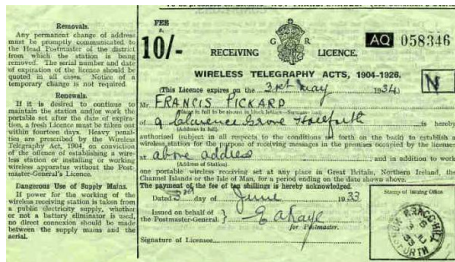 Removals.
Any permanent change of address
must be promptly communicated to
the Head Postmaster of the district
from which the station is being
removed. The serial number and date
of expiration of the licence should be
quoted in all cases. Notice of a
temporary change is not required.
Renewals.
If it is desired to continue to
maintain the station and/or work the
portable set after the date of expira-
tion, a fresh Licence must be taken out
within fourteen days. Heavy penal-
ties are prescribed by the Wireless
Telegraphy Act, 1904, on conviction
of the offence of establishing a wire-
less station or installing or working
wireless apparatus without the Post-
master-General's Licence.
Dangerous Use of Supply Mains.
If power for the working of the
wireless receiving station is taken from
a public electricity supply, whether
or not a battery eliminator is used,
no direct connexion should be made
between the supply mains and the
aerial.
FEE
10/-
G R
RECEIVING LICENCE.
AQ 058346
WIRELESS TELEGRAPHY ACTS, 1904-1926.
N
(This Licence expires on the 31st May 1934.)
Mr. FRANCIS PICKARD
(Name in full to be shown in block letters—Surname last)
of 9 Clarence Grove Horsforth is hereby
(Address in full).
authorised (subject in all respects to the conditions set forth on the back) to establish a
wireless station for the purpose of receiving messages in the premises occupied by the licensee
at above address and in addition to work
(Address of Station)
one portable wireless receiving set at any place in Great Britain, Northern Ireland, the
Channel Islands or the Isle of Man, for a period ending on the date shown above.
The payment of the fee of ten shillings is hereby acknowledged.
Dated 3rd day of June 1933
Issued on behalf of
the Postmaster-General } E A Kaye
for Postmaster.
Signature of Licensee
Stamp of Issuing Office